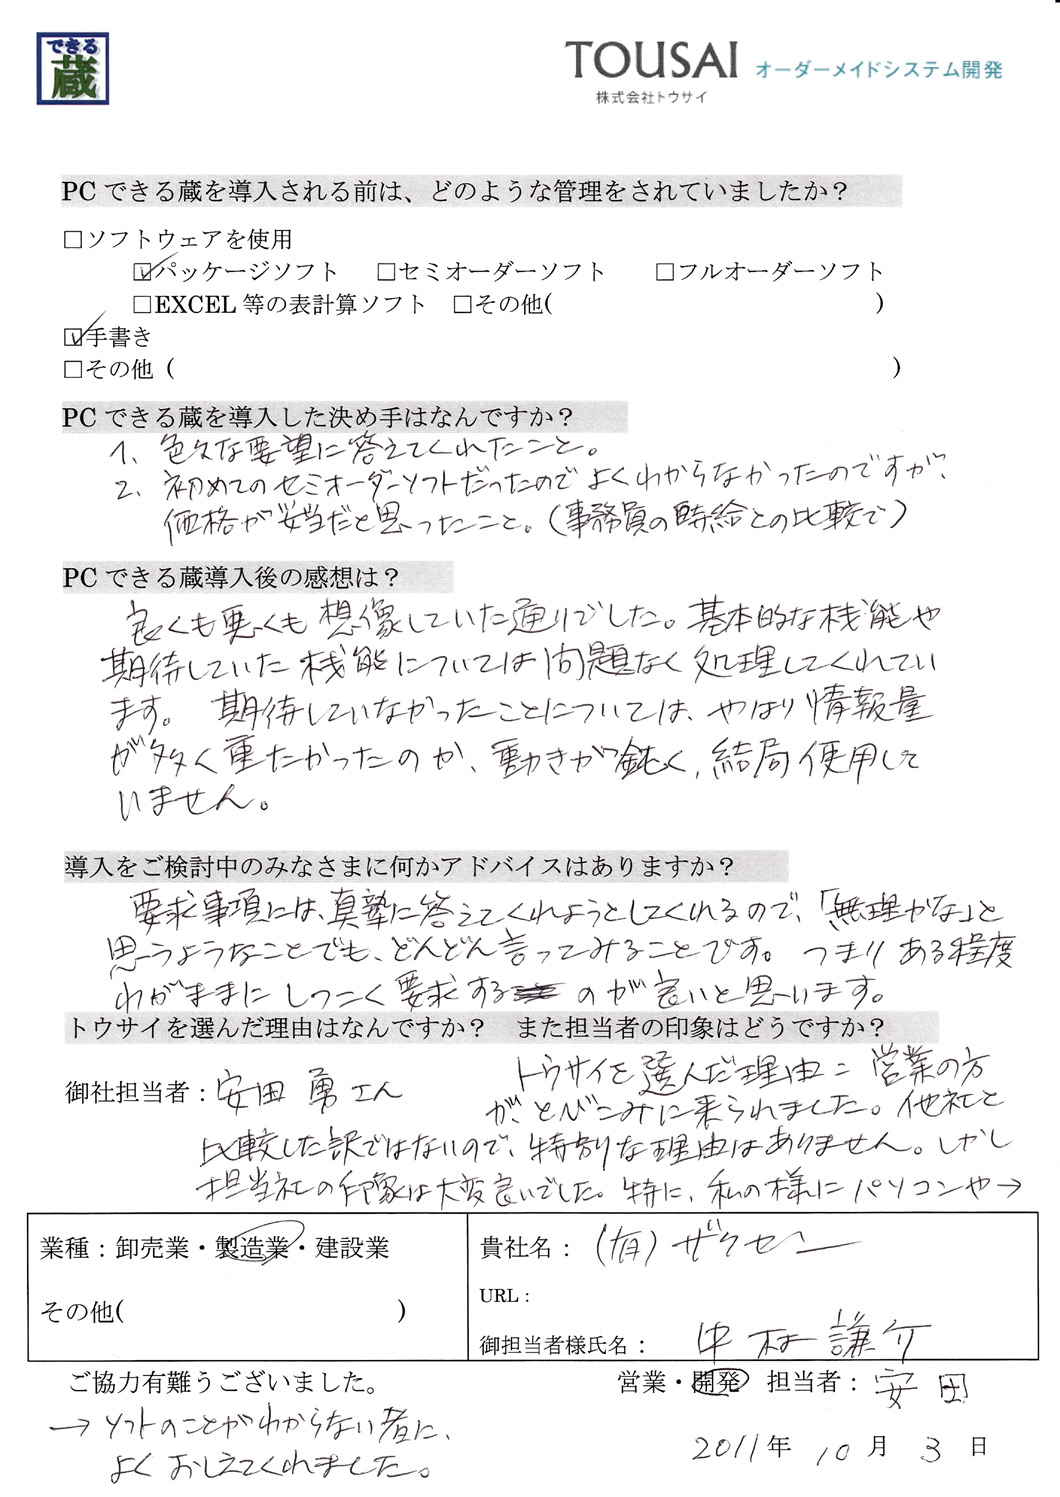 できる
蔵
TOUSAI オーダーメイドシステム開発
株式会社トウサイ
PCできる蔵を導入される前は、どのような管理をされていましたか？
□ソフトウェアを使用
☑パッケージソフト □セミオーダーソフト □フルオーダーソフト
□EXCEL等の表計算ソフト □その他( )
☑手書き
□その他（ ）
PCできる蔵を導入した決め手はなんですか？
1、色々な要望に答えてくれたこと。
2、初めてのセミオーダーソフトだったのでよくわからなかったのですが、
価格が妥当だと思ったこと。（事務員の時給との比較で）
PCできる蔵導入後の感想は？
良くも悪くも想像していた通りでした。基本的な機能や
期待していた機能については問題なく処理してくれてい
ます。 期待していなかったことについては、やはり情報量
が多く重たかったのか、動きが鈍く、結局使用して
いません。
導入をご検討中のみなさまに何かアドバイスはありますか？
要求事項には、真摯に答えてくれようとしてくれるので、「無理かな」と
思うようなことでも、どんどん言ってみることです。つまりある程度
わがままにしつこく要求するのが良いと思います。
トウサイを選んだ理由はなんですか？ また担当者の印象はどうですか？
御社担当者：安田 勇さん トウサイを選んだ理由＝営業の方
が、とびこみに来られました。他社と
比較した訳ではないので、特別な理由はありません。しかし
担当社の印象は大変良いでした。特に、私の様にパソコンや→
業種：卸売業・製造業・建設業
その他( )
貴社名：（有）ザクセン
URL：
御担当者様氏名： 中村謙介
ご協力有難うございました。 営業・開発 担当者：安田
→ソフトのことがわからない者に、
よくおしえてくれました。
2011年 10月 3日